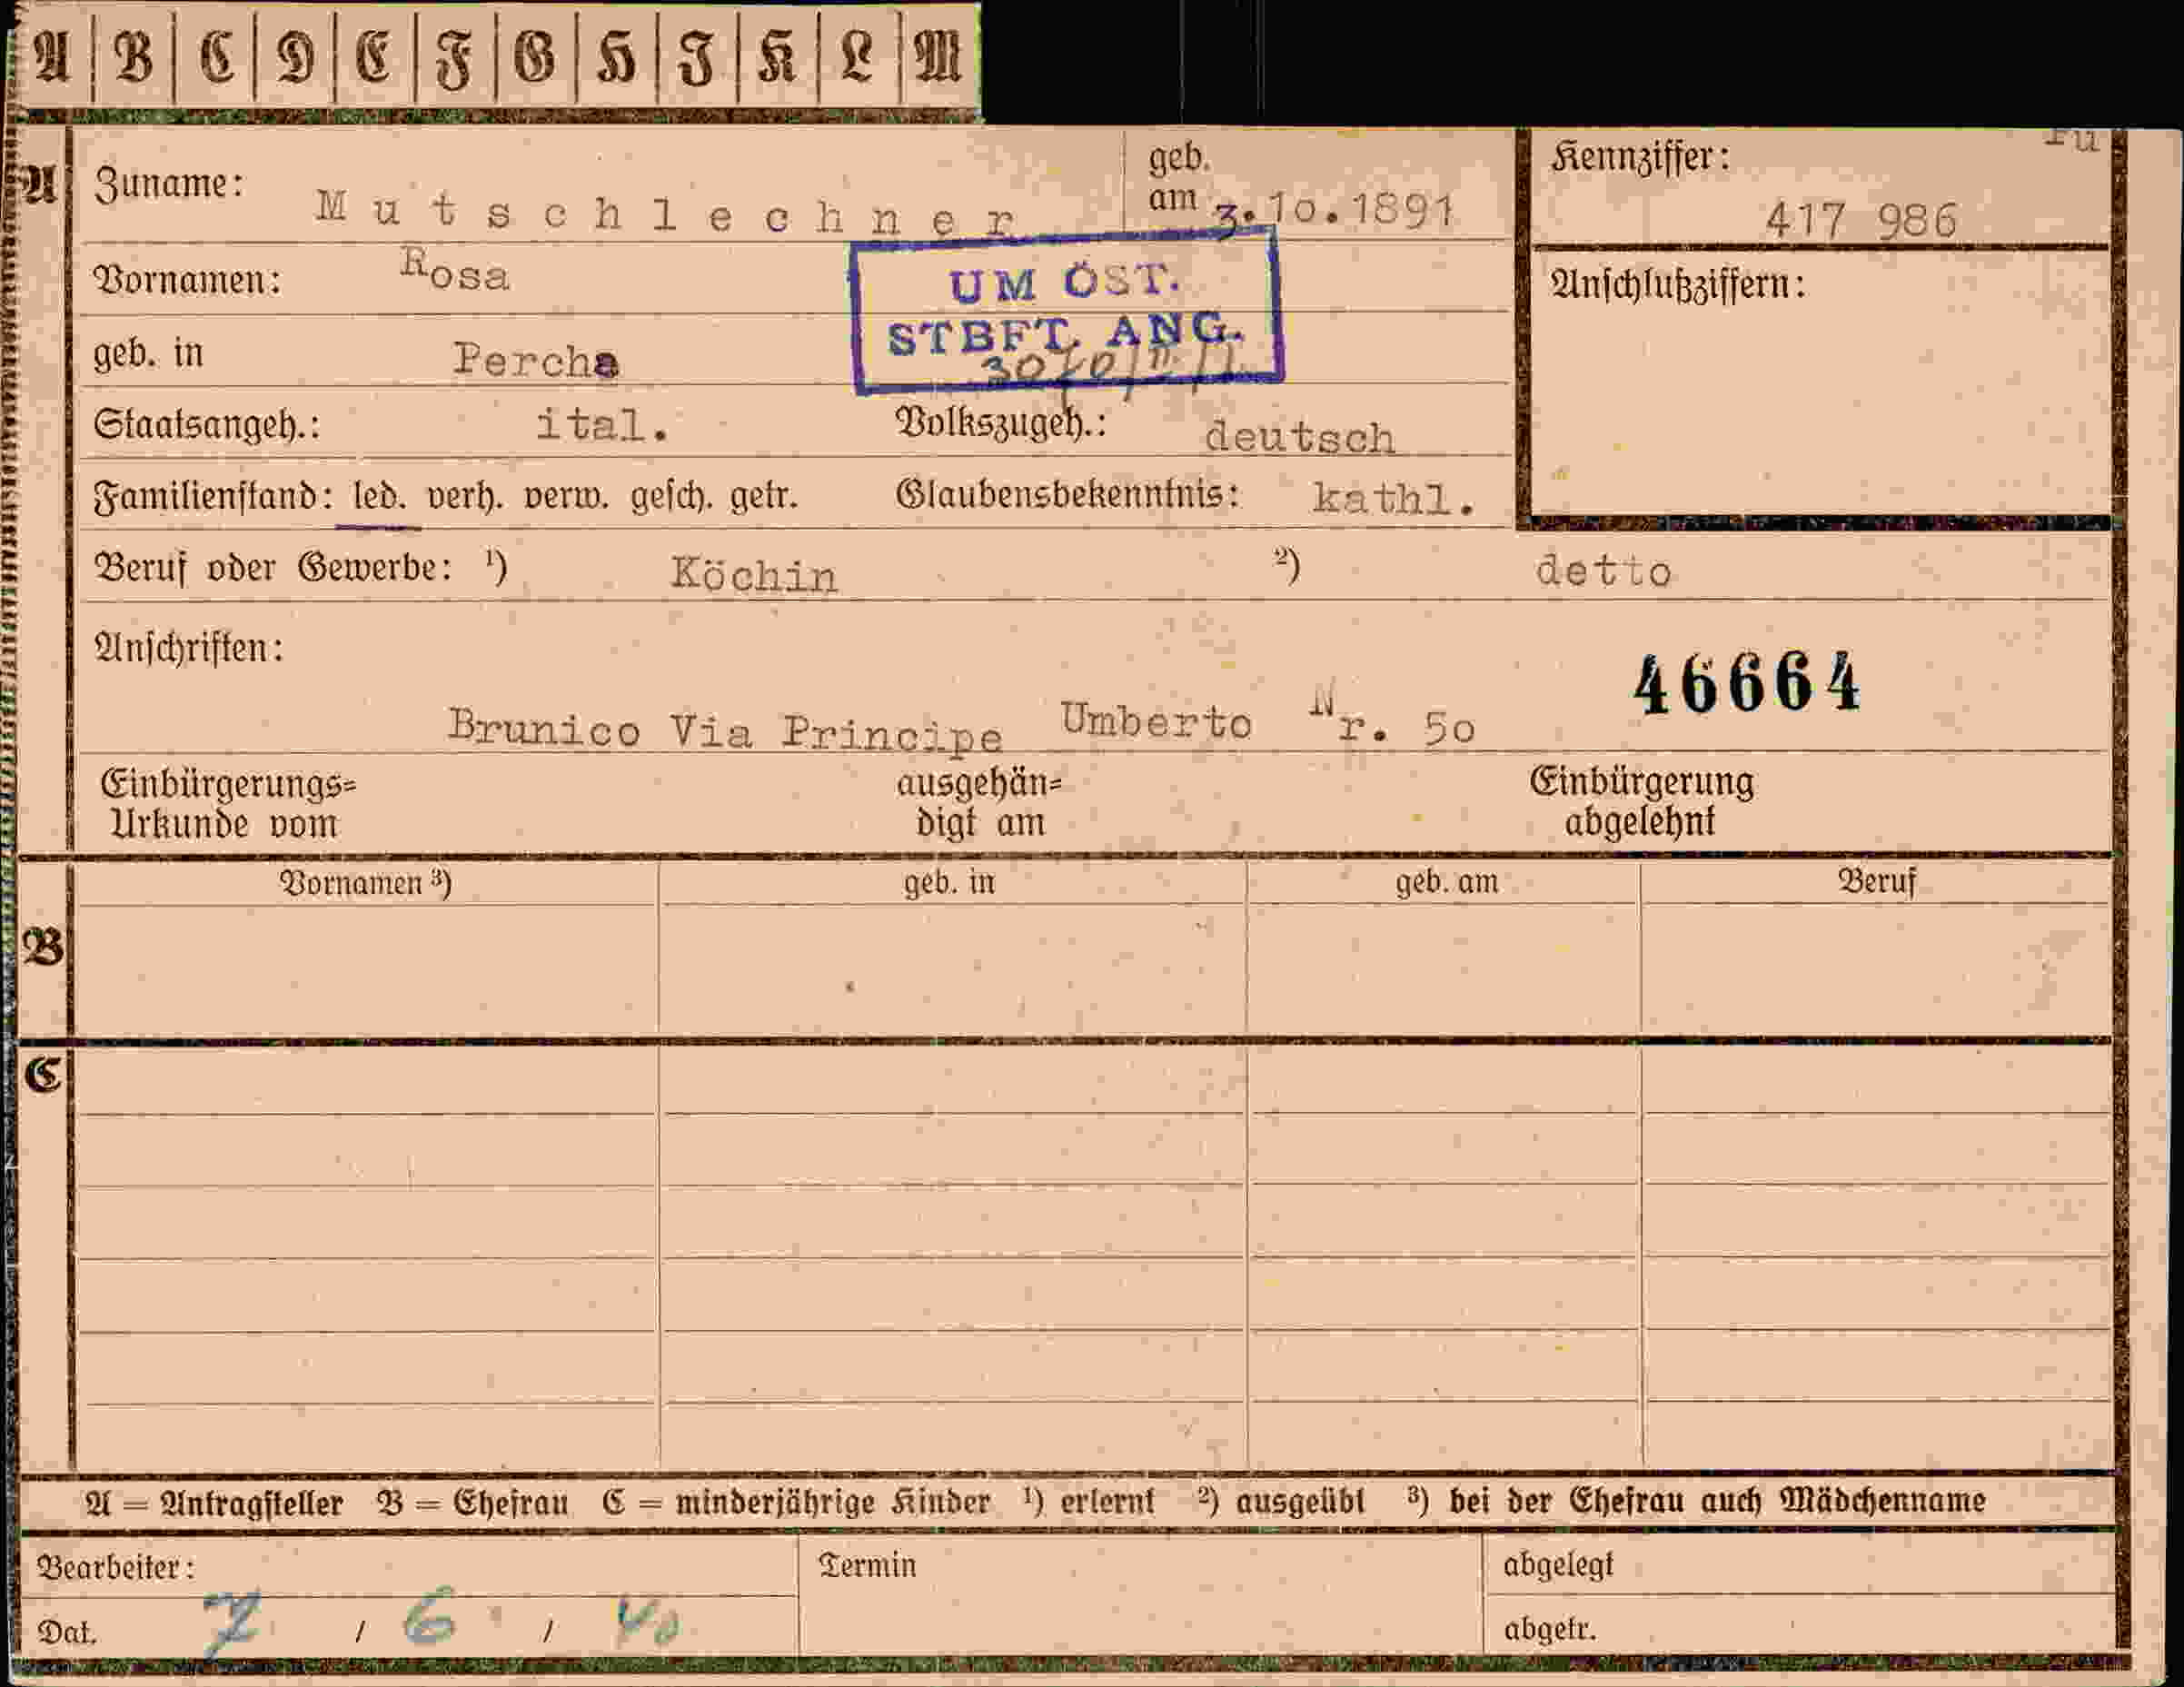 A B C D E F G H I K L M
A
Zuname: Mutschlechner geb. am 3.10.1891
Kennziffer: 417 986
Vornamen: Rosa
UM ÖST.
STBFT. ANG.
Anschlußziffern:
geb. in Percha
Staatsangeh.: ital. Volkszugeh.: deutsch
Familienstand: led. verh. verw. gesch. getr. Glaubensbekenntnis: kathl.
Beruf oder Gewerbe: ¹) Köchin ²) detto
Anschriften:
46664
Brunico Via Principe Umberto Nr. 5o
Einbürgerungs= ausgehän= Einbürgerung
Urkunde vom digt am abgelehnt
Vornamen ³) geb. in geb. am Beruf
B
C
A = Antragsteller B = Ehefrau C = minderjährige Kinder ¹) erlernt ²) ausgeübt ³) bei der Ehefrau auch Mädchenname
Bearbeiter: Termin abgelegt
Dat. 7 / 6 / 40 abgetr.